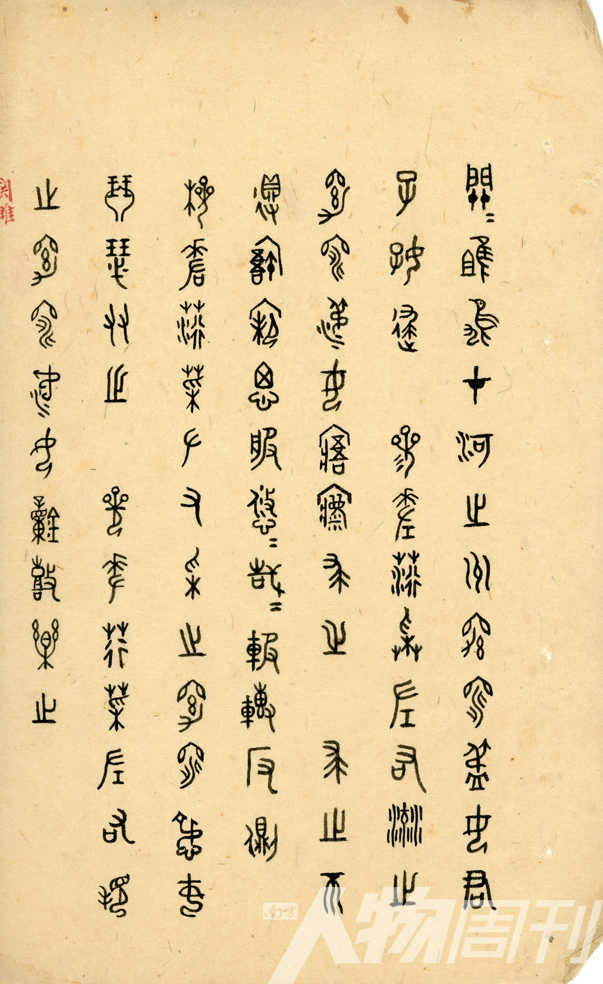 關=雎鳩才河之州窈窕淑女君
子好逑 參差荇菜左右流之
窈窕淑女寤寐求之 求之不
得寤寐思服悠=哉=輾轉反側
參差荇菜左右采之窈窕淑女
琴瑟友之 參差荇菜左右芼
之窈窕淑女鐘鼓樂之
关雎
人物周刊